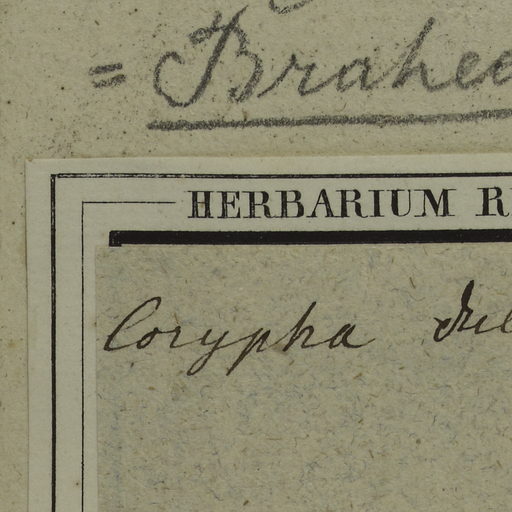 = Brahe
HERBARIUM R
Corypha dul